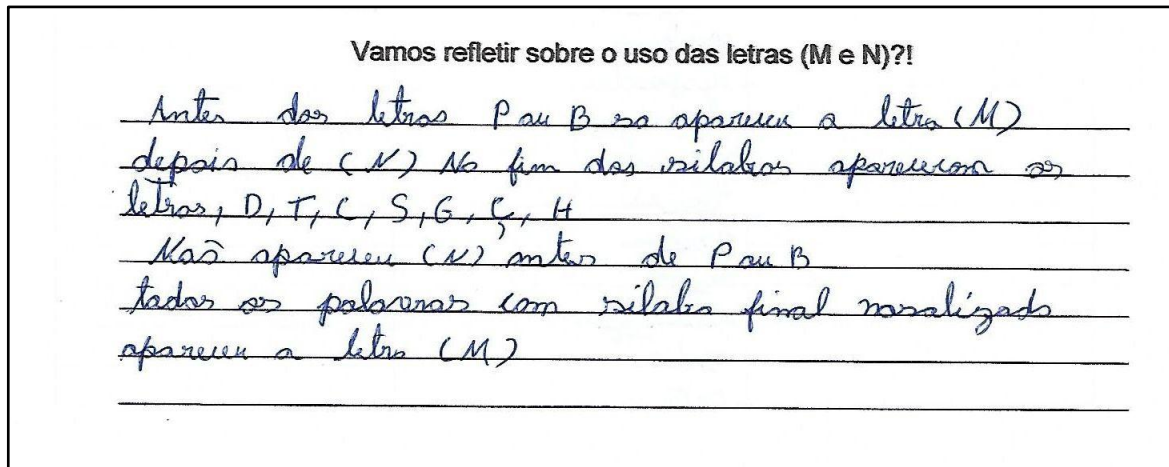 Vamos refletir sobre o uso das letras (M e N)?!
Antes das letras P ou B so apareceu a letra (M)
depois de (N) No fim das silabas apareceram as
letras, D, T, C, S, G, Ç, H
Naõ apareceu (N) antes de P ou B
todas as palavras com silaba final nasalizado
apareceu a letra (M)